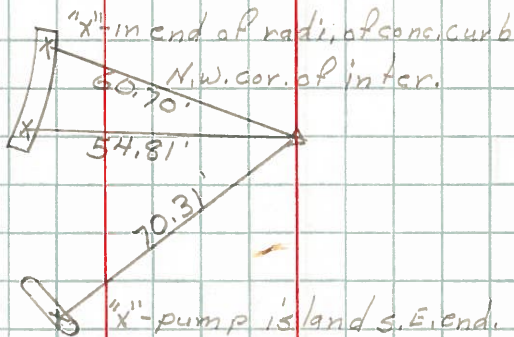 "x"-in end of radi. of conc. curb
N.W. cor. of inter.
60.70'
54.81'
70.31'
"x"-pump island S.E. end.